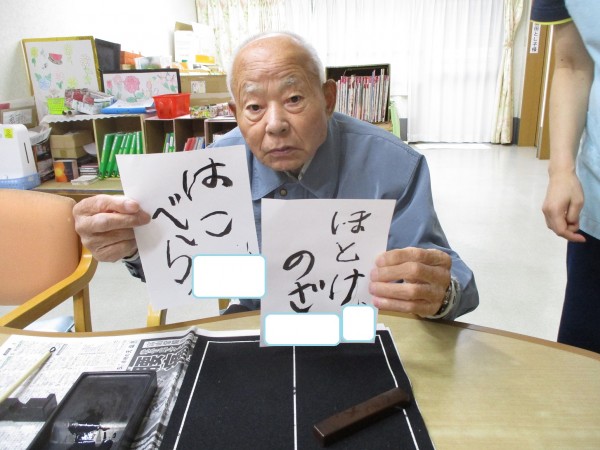 はこ
べら
ほとけ
のざ